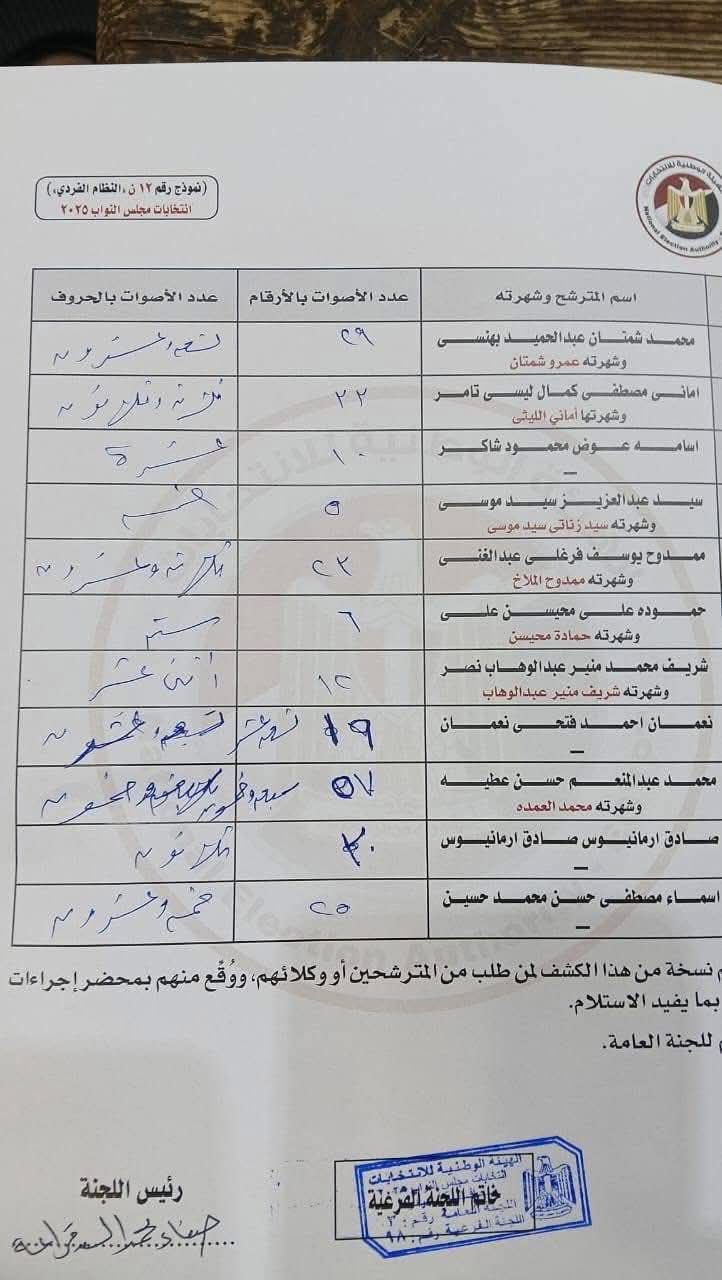 (نموذج رقم ١٢ ن «النظام الفردي»)
انتخابات مجلس النواب ٢٠٢٥
National Election Authority
اسم المترشح وشهرته عدد الأصوات بالأرقام عدد الأصوات بالحروف
محمد شمتان عبدالحميد بهنسى ٢٩ تسعه وعشرون
وشهرته عمرو شمتان
امانى مصطفى كمال ليسى تامر
وشهرتها أماني الليثى
اسامه عوض محمود شاكر ١٠ عشرة
–
سيد عبدالعزيز سيد موسى ٥ خمسه
وشهرته سيد زناتى سيد موسى
ممدوح يوسف فرغلى عبدالغنى ٢٣ ثلاثه وعشرون
وشهرته ممدوح الملاخ
حموده على محيسن على ٦ سته
وشهرته حمادة محيسن
شريف محمد منير عبدالوهاب نصر ١٢ أثنى عشر
وشهرته شريف منير عبدالوهاب
نعمان احمد فتحى نعمان ١٩ تسعه عشر
–
محمد عبدالمنعم حسن عطيه ٥٧ سبعه وخمسون
وشهرته محمد العمده
صادق ارمانيوس صادق ارمانيوس ٣٠ ثلاثون
–
اسماء مصطفى حسن محمد حسين ٢٥ خمسه وعشرون
–
نسخة من هذا الكشف لمن طلب من المترشحين أو وكلائهم، ووُقِّع منهم بمحضر إجراءات
بما يفيد الاستلام.
للجنة العامة.
الهيئة الوطنية للانتخابات
انتخابات مجلس النواب
خاتم اللجنة الفرعية
اللجنة العامة رقم: ٣
اللجنة الفرعية رقم: ٩٨
رئيس اللجنة